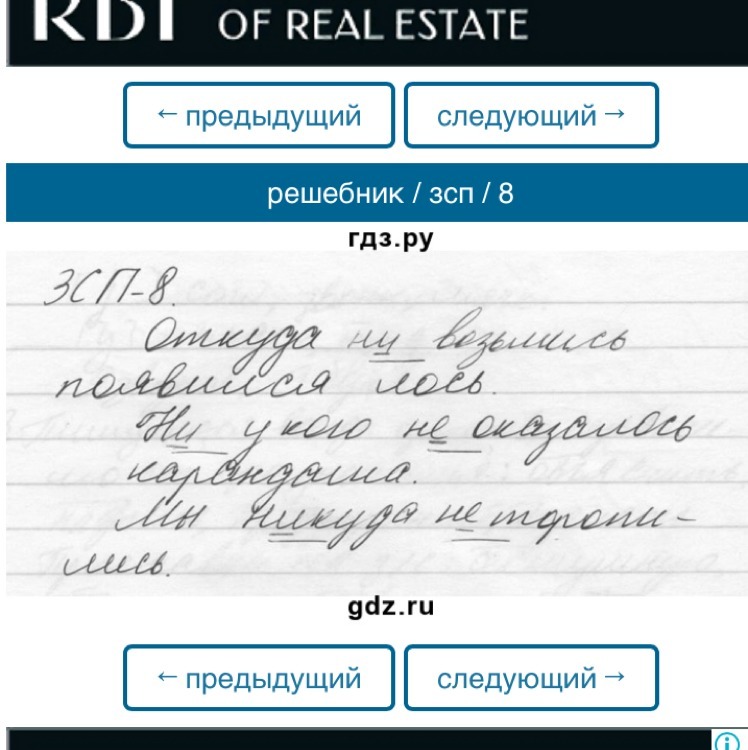 RDI OF REAL ESTATE
← предыдущий
следующий →
решебник / зсп / 8
гдз.ру
ЗСП-8.
Откуда ни возьмись
появился лось.
Ни у кого не оказалось
карандаша.
Мы никуда не торопи-
лись.
gdz.ru
← предыдущий
следующий →